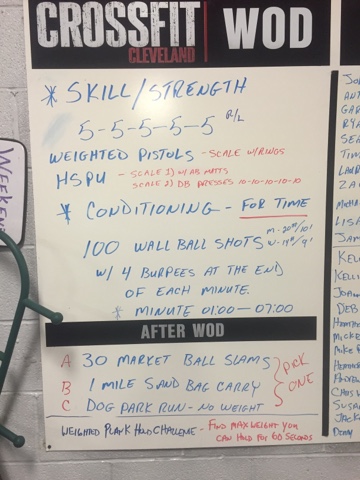 CROSSFIT
CLEVELAND
WOD
* SKILL/STRENGTH
5-5-5-5-5 R/L
WEIGHTED PISTOLS - SCALE W/RINGS
HSPU - SCALE 1) W/AB MATTS
SCALE 2) DB PRESSES 10-10-10-10-10
* CONDITIONING - FOR TIME
100 WALL BALL SHOTS M-20#/10' W-14#/9'
W/ 4 BURPEES AT THE END
OF EACH MINUTE.
* MINUTE 01:00 - 07:00
AFTER WOD
A 30 MARKET BALL SLAMS
B 1 MILE SAND BAG CARRY
C DOG PARK RUN - NO WEIGHT
PICK ONE
WEIGHTED PLANK HOLD CHALLENGE - FIND MAX WEIGHT YOU
CAN HOLD FOR 60 SECONDS
WEEKEN
LISA
KELL
KELLY
DEB
MICKE
MIKE
SUSA
JACK